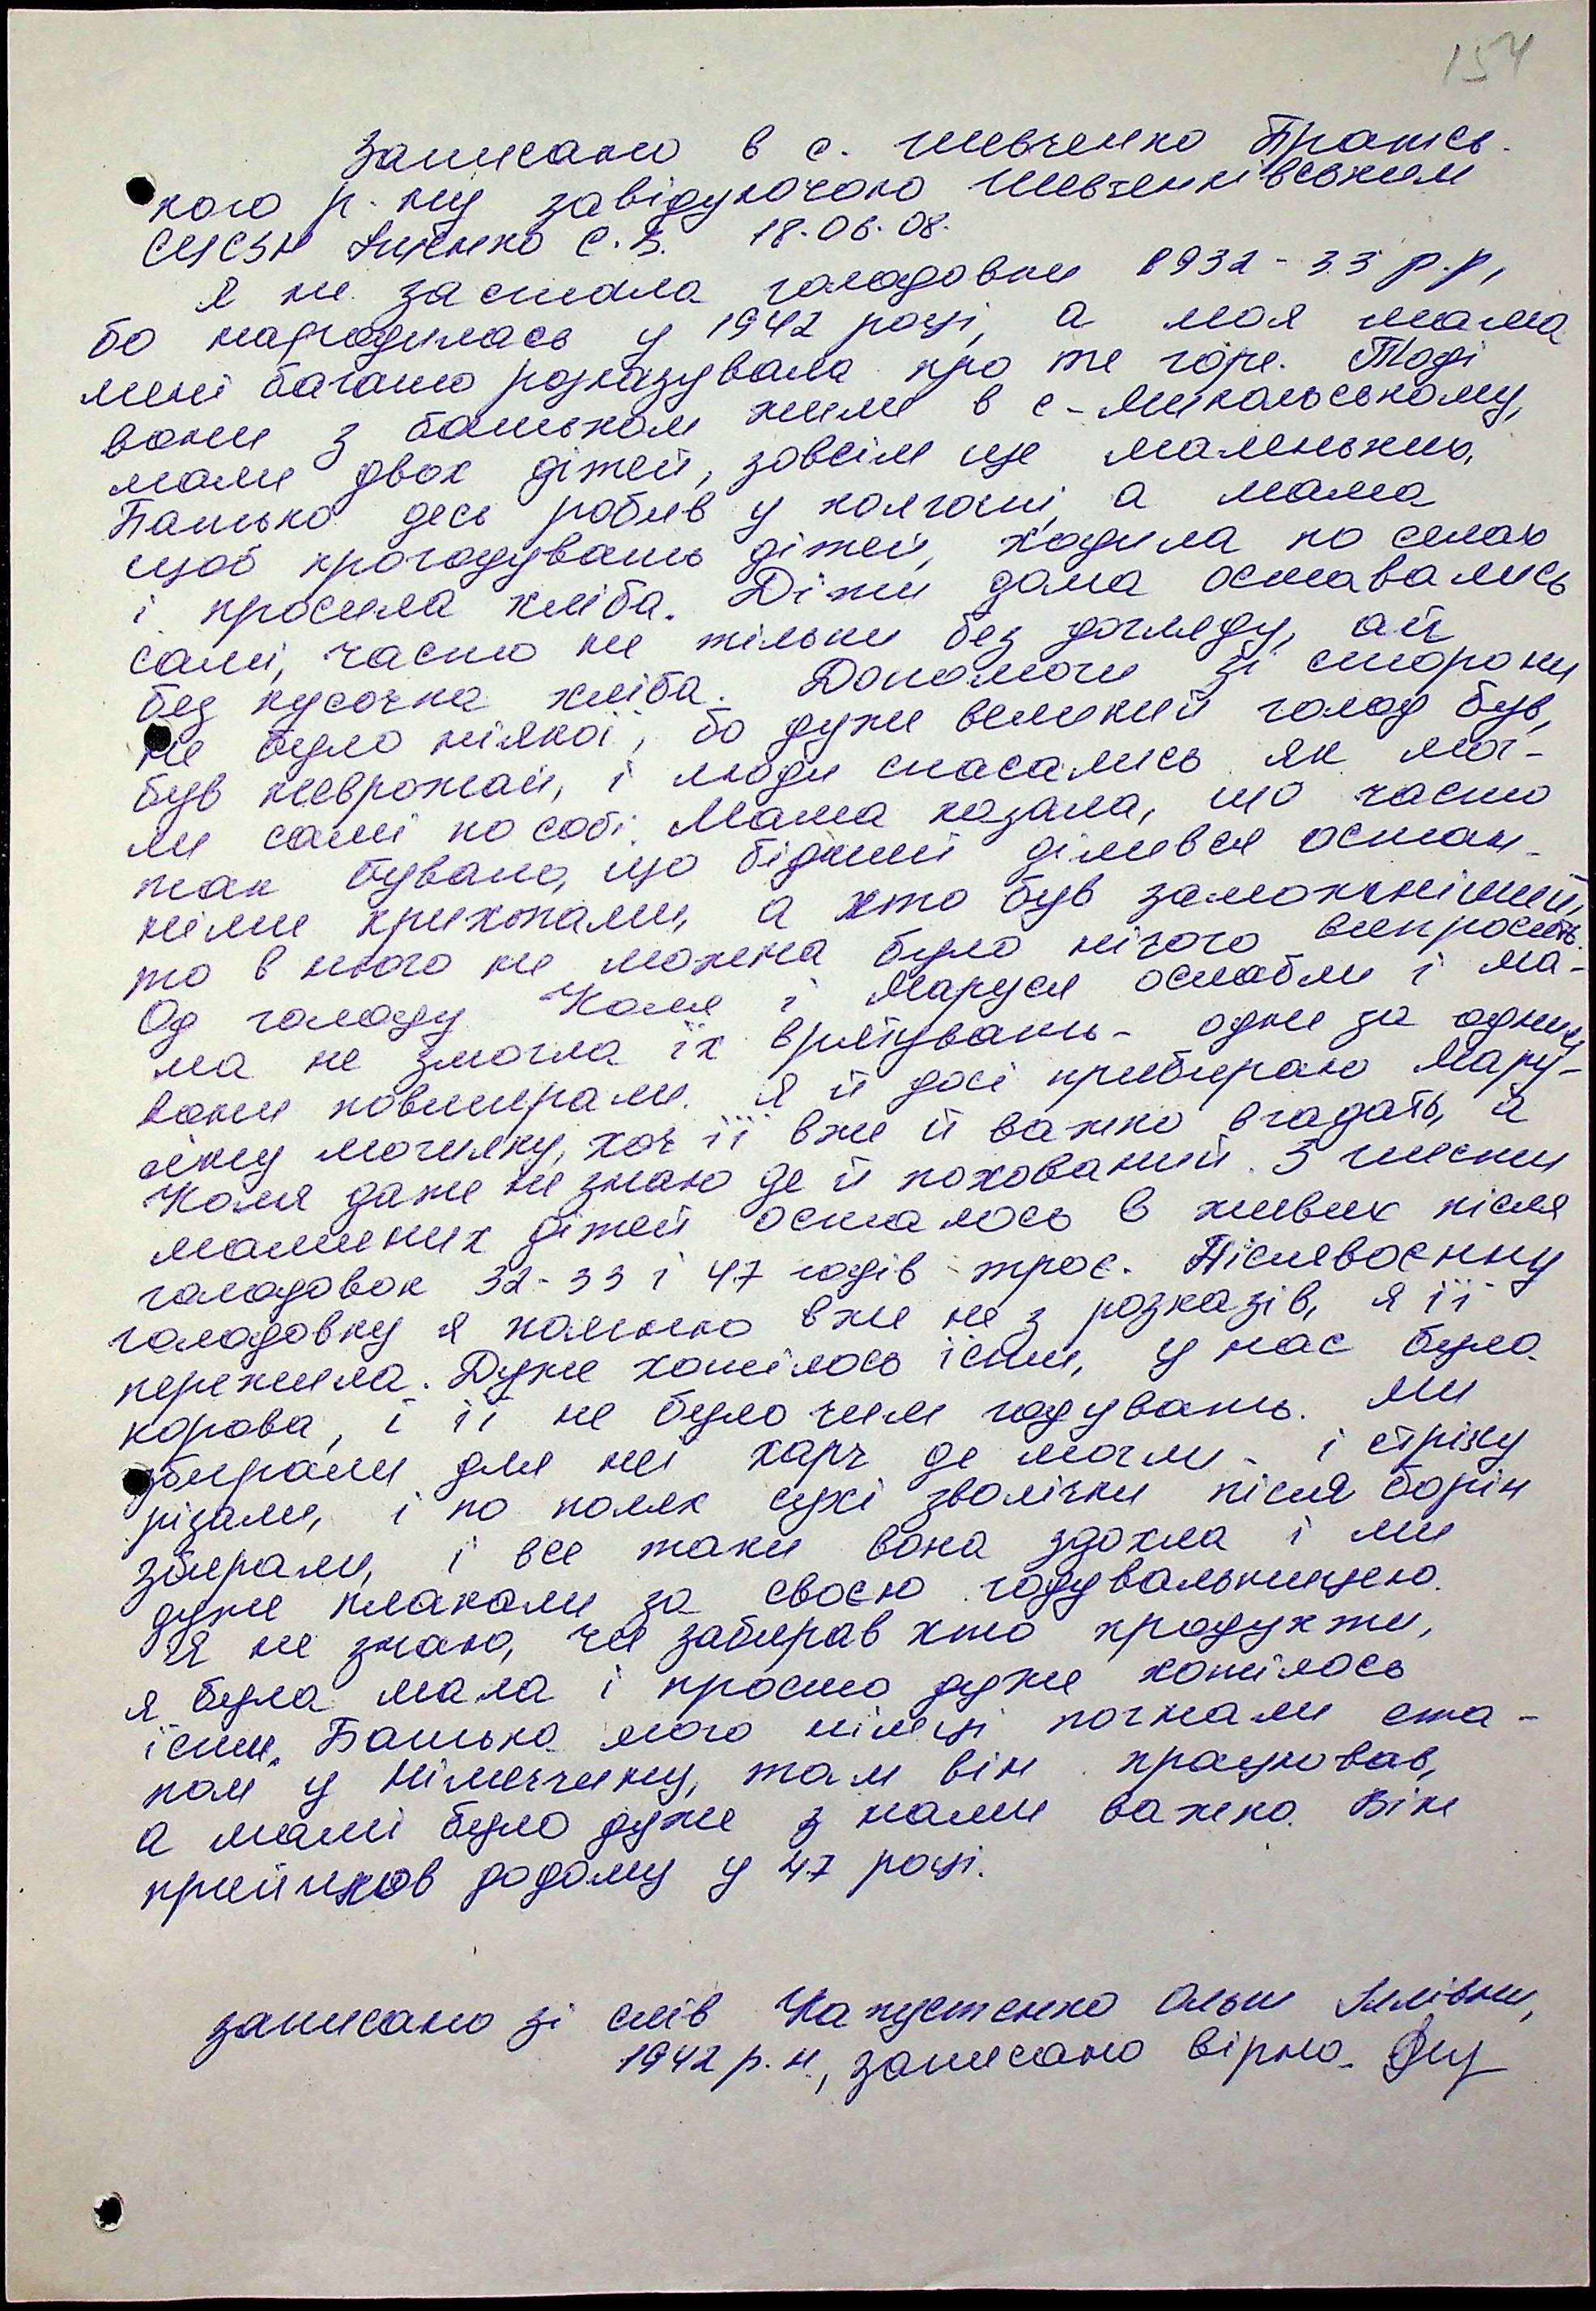 154
Записано в с. Шевченко Братсь-
кого р-ну завідуючою Шевченківським
18.06.08.
Я не застала голодовки 1932-33 р.р,
бо народилась у 1942 році, а моя мама
мені багато розказувала про те горе. Тоді
вони з батьком жили в с-Микольському,
мали двох дітей, зовсім ще маленьких.
Батько десь робив у колгоспі, а мама
щоб прогодувать дітей, ходила по селах
і просила хліба. Діти дома оставались
самі, часто не тільки без догляду, а й
без кусочка хліба. Допомоги зі сторони
не було ніякої, бо дуже великий голод був,
був неврожай, і люди спасались як мог-
ли самі по собі. Мама казала, що часто
так бувало, що бідний ділився остан-
німи крихтами, а хто був заможніший,
то в нього не можна було нічого випросить.
Од голоду Коля і Маруся ослабли і ма-
ма не змогла їх врятувать - одне за одним
вони повмирали. Я й досі прибираю Мару-
сіну могилку, хоч її вже й важко вгадать, а
Коля даже не знаю де й похований. З шести
маминих дітей осталось в живих після
голодовок 32-33 і 47 годів троє. Післявоєнну
голодовку я помню вже не з розказів, я її
пережила. Дуже хотілось їсти, у нас була
корова, і її не було чим годувать. Ми
збирали для неї харч де могли - і стріху
різали, і по полях сухі зволічки після борін
збирали, і все таки вона здохла і ми
дуже плакали за своєю годувальницею.
Я не знаю, чи забирав хто продукти,
я була мала і просто дуже хотілось
їсти. Батька мого німці погнали ета-
пом у Німеччину, там він працював,
а мамі було дуже з нами важко. Він
прийшов додому у 47 році.
записано зі слів Капустенко Ольги Іллівни,
1942 р.н., записано вірно.